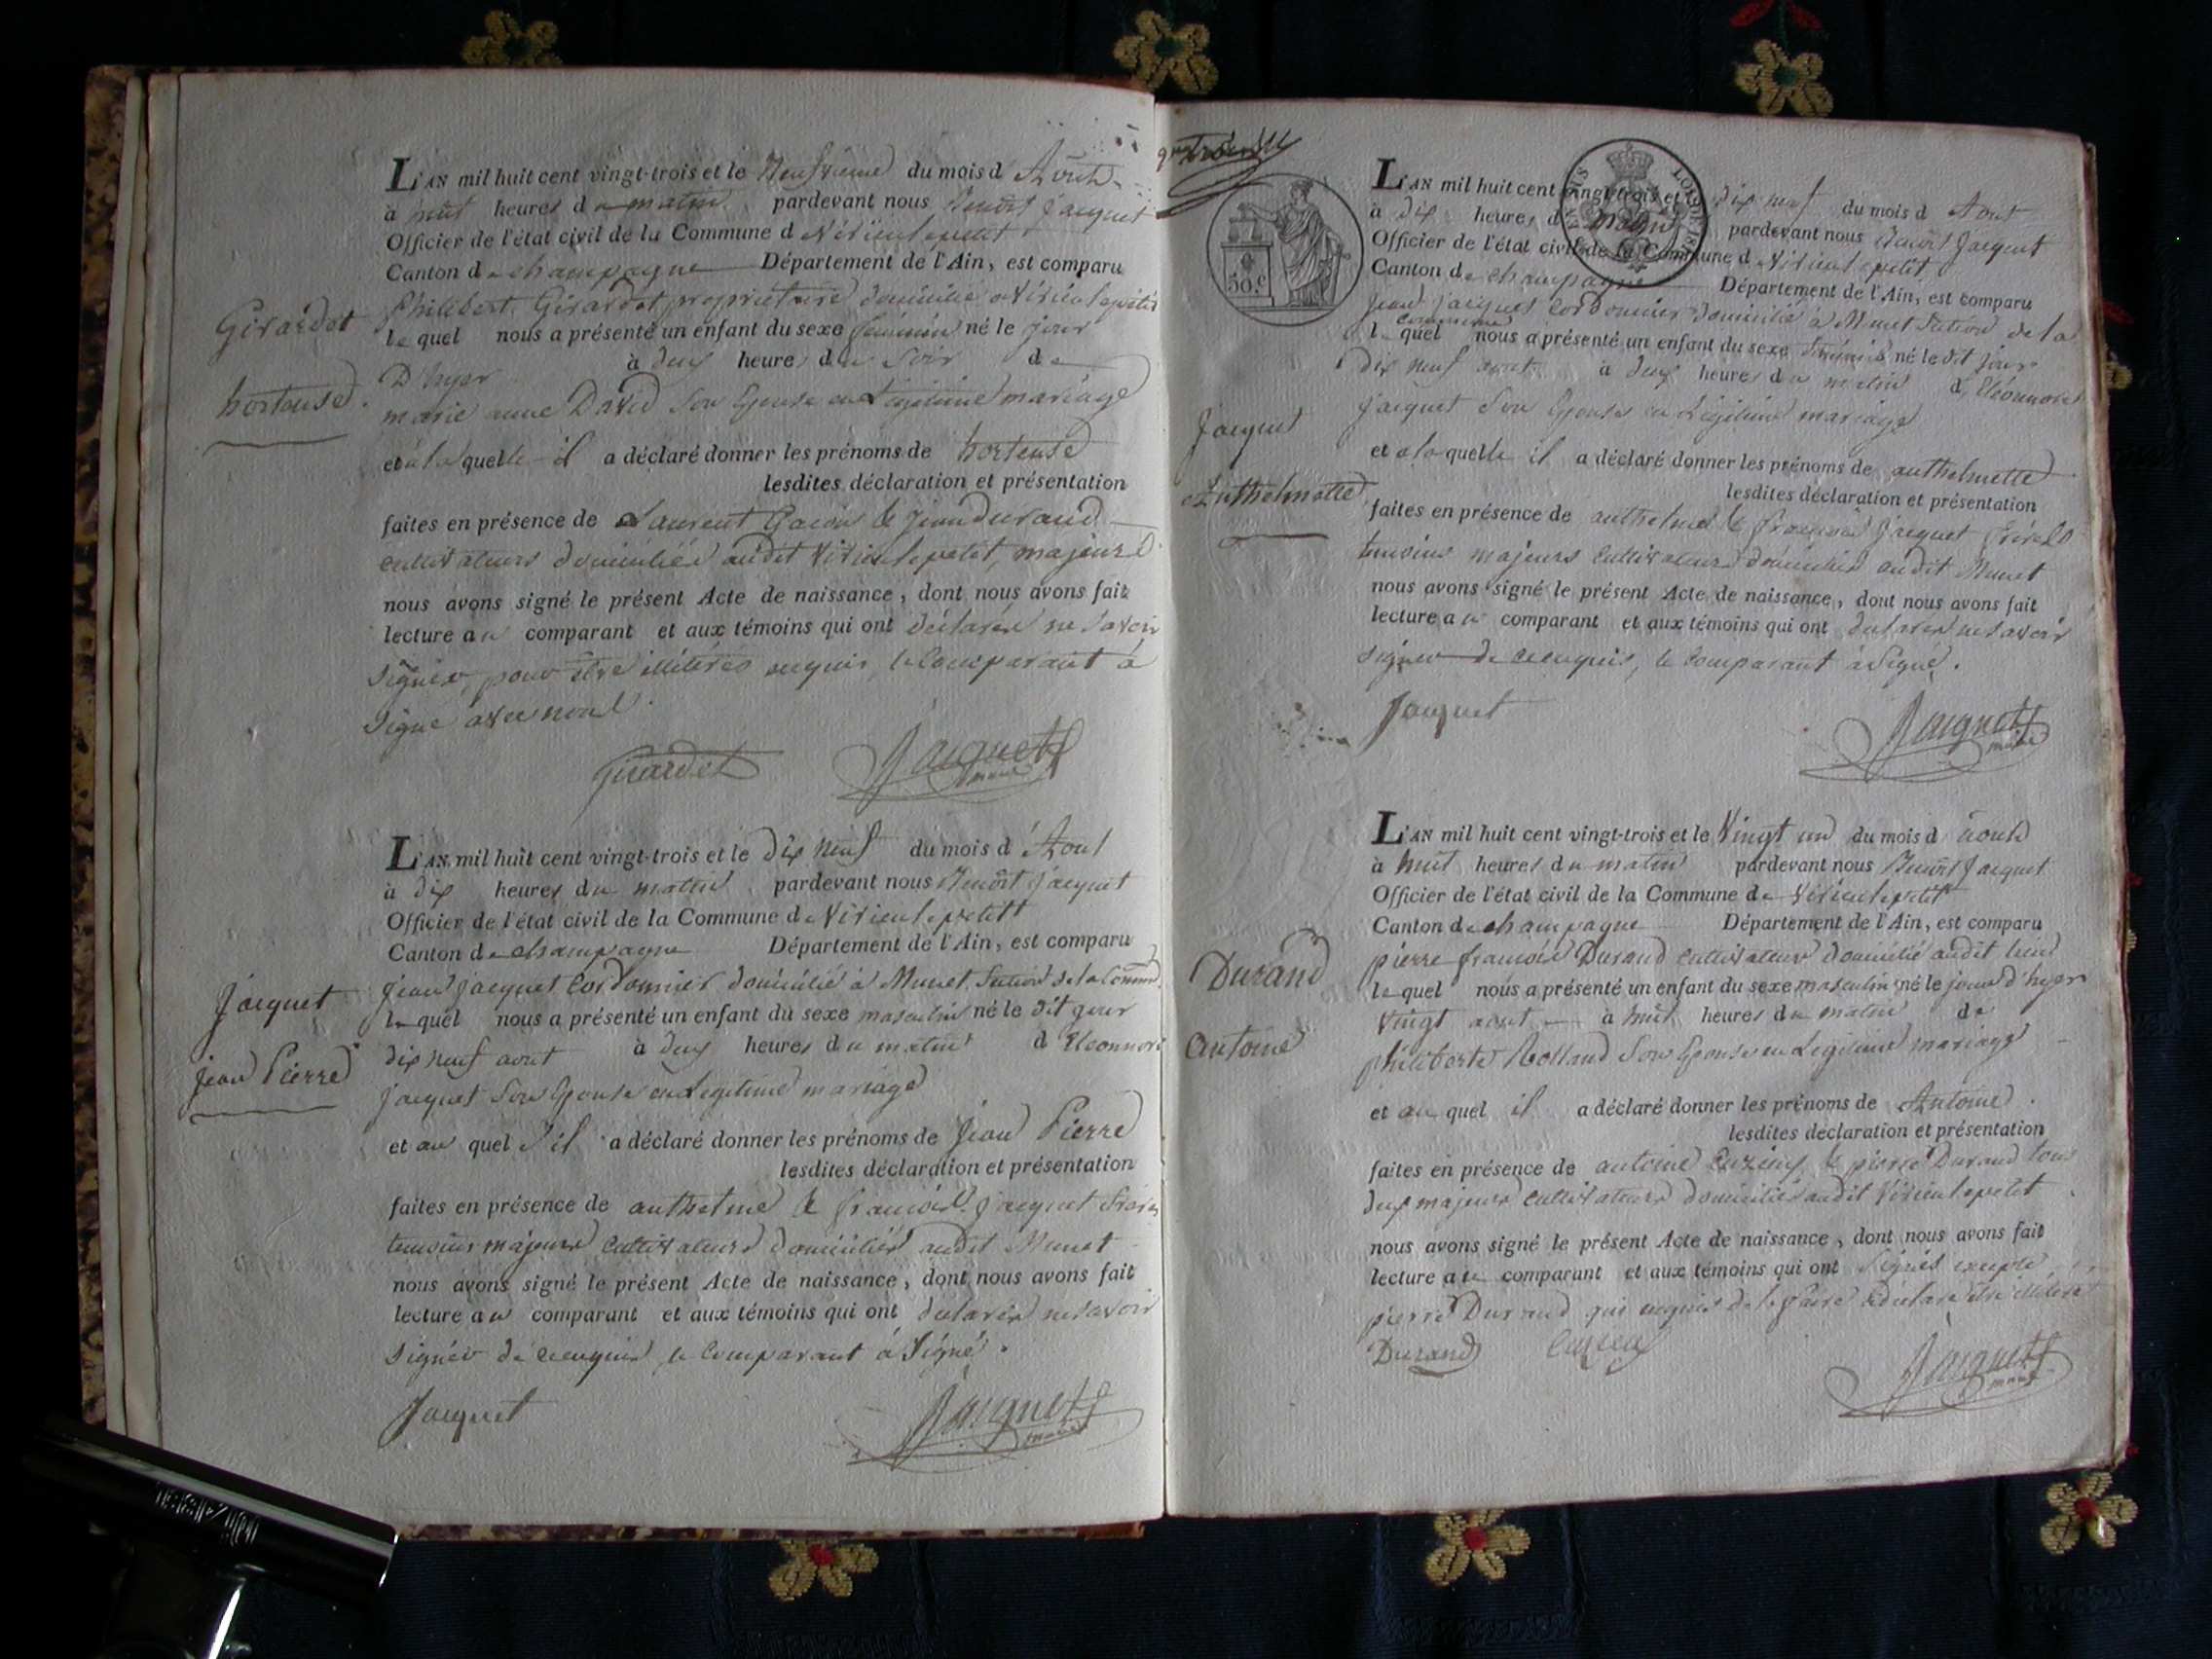 L'AN mil huit cent vingt-trois et le Neufvieme du mois d Août
à huit heures du matin pardevant nous Benoît Jacquet
Officier de l'état civil de la Commune d Virieulepetit
Canton de champagne Département de l'Ain, est comparu
Philibert Girardet proprietaire domicilié a Virieulepetit
Girardet
le quel nous a présenté un enfant du sexe feminin né le jour
D'hyer à deux heures du Soir de
hortense
marie anne David Son Epouse en Legitime mariage
et à la quelle il a déclaré donner les prénoms de hortense
lesdites déclaration et présentation
faites en présence de Laurent & Jean durand
cultivateurs domiciliés audit Virieulepetit, majeurs
nous avons signé le présent Acte de naissance, dont nous avons fait
lecture au comparant et aux témoins qui ont déclarés ne savoir
signer, pour être illitérés requis, le Comparant à
signé avec nous
Girardet Jacquet maire
L'AN mil huit cent vingt-trois et le dix neuf du mois d'Aout
à dix heures du matin pardevant nous Benoît Jacquet
Officier de l'état civil de la Commune de Virieulepetit
Canton de champagne Département de l'Ain, est comparu
Jean Jacquet Cordonnier domicilié à Munet Section de la Comm
Jacquet
le quel nous a présenté un enfant du sexe masculin né le dit jour
dix neuf aout à deux heures du matin d'Eleonnore
Jean Pierre
Jacquet Son Epouse en Legitime mariage
et au quel il a déclaré donner les prénoms de Jean Pierre
lesdites déclaration et présentation
faites en présence de anthelme & francois Jacquet freres
temoins majeurs Cultivateurs domiciliés audit Munet
nous avons signé le présent Acte de naissance, dont nous avons fait
lecture au comparant et aux témoins qui ont declarés ne savoir
signer de ce enquis, le Comparant à Signé.
Jacquet Jacquet maire
50.c
L'AN mil huit cent vingt-trois et le dix neuf du mois d Aout
à dix heures du matin pardevant nous Benoît Jacquet
Officier de l'état civil de la Commune d Virieulepetit
Canton de champagne Département de l'Ain, est comparu
Jean Jacquet Cordonnier domicilié à Munet Section de la
commune
le quel nous a présenté un enfant du sexe feminin né le dit jour
dix neuf aout à deux heures du matin d'Eléonnore
Jacquet Son Epouse en Legitime mariage
Jacquet
et a la quelle il a déclaré donner les prénoms de anthelmette
lesdites déclaration et présentation
Anthelmette
faites en présence de anthelme & francois Jacquet freres
temoins majeurs cultivateurs domiciliés audit Munet
nous avons signé le présent Acte de naissance, dont nous avons fait
lecture au comparant et aux témoins qui ont declarés ne savoir
signer de ce enquis, le comparant à Signé.
Jacquet Jacquet maire
L'AN mil huit cent vingt-trois et le Vingt un du mois d août
à huit heures du matin pardevant nous Benoît Jacquet
Officier de l'état civil de la Commune de Virieulepetit
Canton de champagne Département de l'Ain, est comparu
pierre francois Durand cultivateur domicilié audit lieu
Durand
le quel nous a présenté un enfant du sexe masculin né le jour d'hyer
vingt aout à huit heures du matin de
Antoine
philiberte Rolland Son Epouse en Legitime mariage
et au quel il a déclaré donner les prénoms de Antoine.
lesdites déclaration et présentation
faites en présence de antoine & pierre Durand tous
deux majeurs cultivateurs domiciliés audit Virieulepetit
nous avons signé le présent Acte de naissance, dont nous avons fait
lecture au comparant et aux témoins qui ont signés excepté
pierre Durand qui requis de le faire a déclaré être illitéré
Durand Jacquet maire